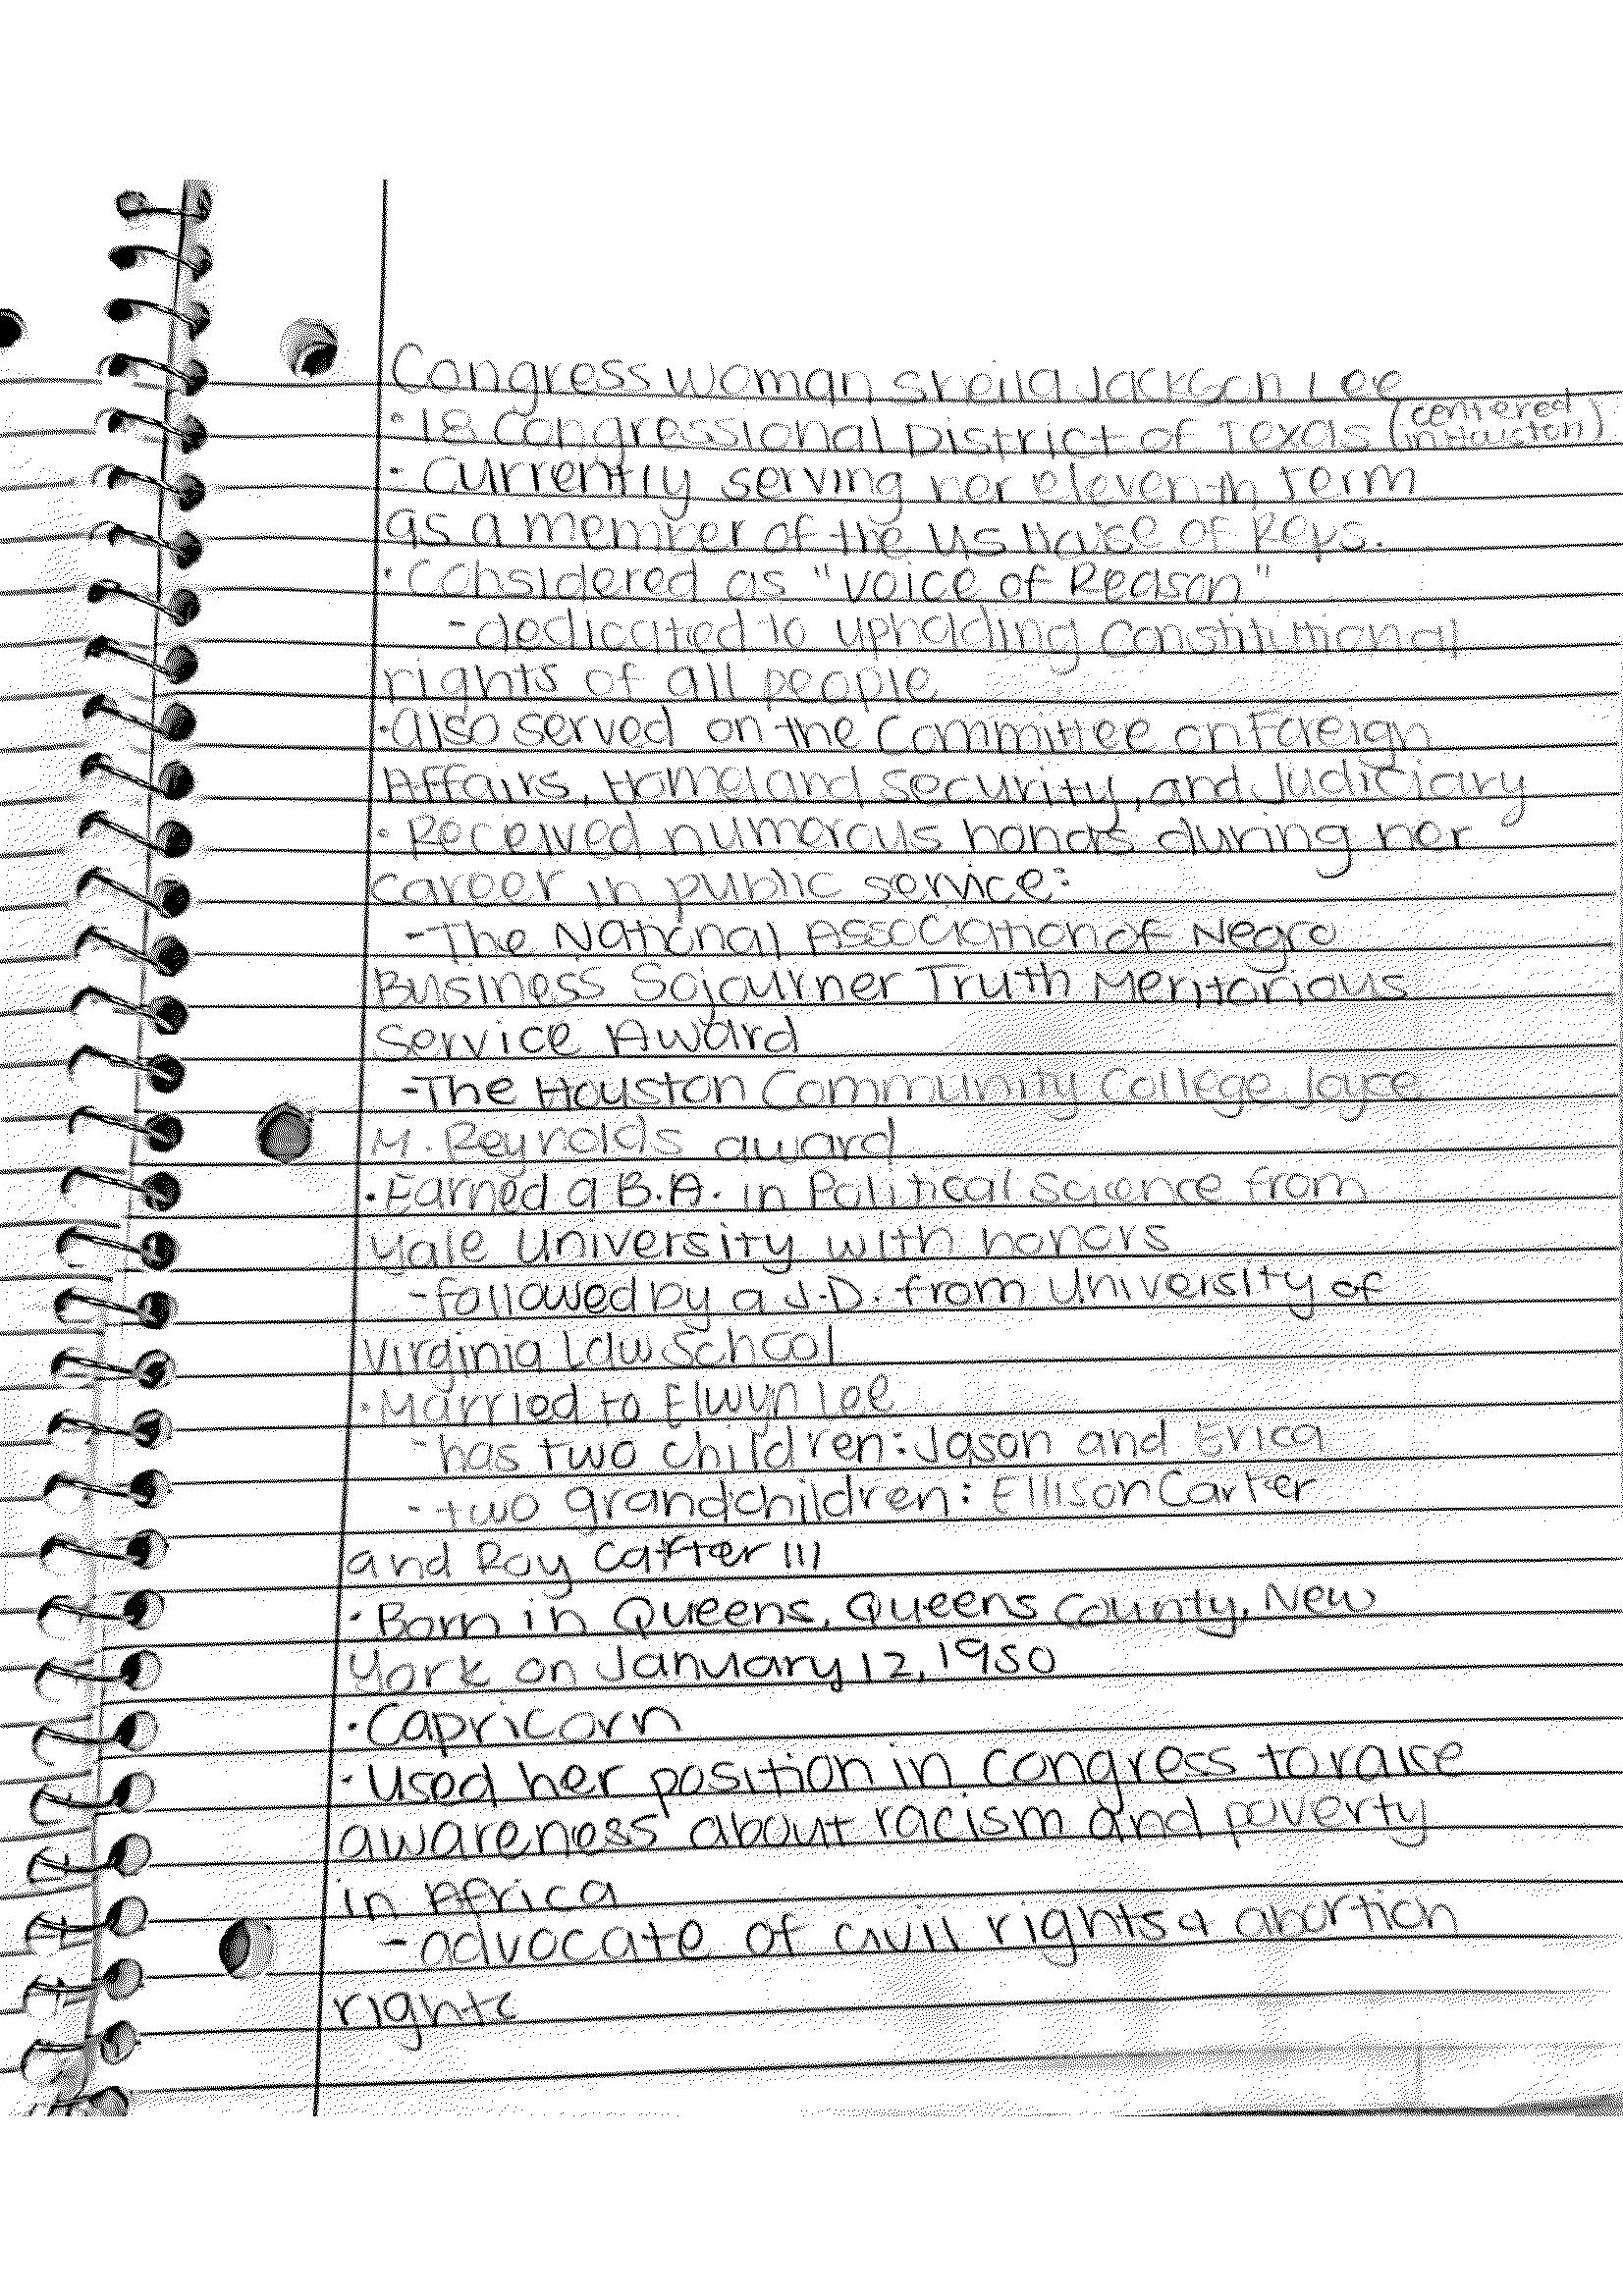 Congress woman Sheila Jackson Lee
· 18 Congressional District of Texas (centered in Houston)
· Currently serving her eleventh term
as a member of the US House of Reps.
· Considered as "voice of Reason"
- dedicated to upholding Constitutional
rights of all people
· Also served on the Committee on Foreign
Affairs, Homeland Security, and Judiciary
· Received numerous honors during her
career in public service:
- The National Association of Negro
Business Sojourner Truth Meritorious
Service Award
- The Houston Community College Joyce
M. Reynolds award
· Earned a B.A. in Political Science from
Yale University with honors
- followed by a J.D. from University of
Virginia Law School
· Married to Elwyn Lee
- has two children: Jason and Erica
- two grandchildren: Ellison Carter
and Roy Carter III
· Born in Queens, Queens County, New
York on January 12, 1950
· Capricorn
· Used her position in Congress to raise
awareness about racism and poverty
in Africa
- advocate of civil rights & abortion
rights